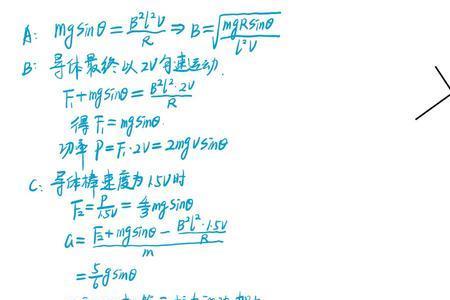 A: mgsinθ = B²l²V/R ⇒ B = √(mgRsinθ/l²V)
B: 导体最终以2V匀速运动.
F₁+mgsinθ = B²l²·2V/R
得 F₁ = mgsinθ.
功率 P = F₁·2V = 2mgVsinθ
C: 导体棒速度为1.5V时
F₂ = P/1.5V = 4/3 mgsinθ
a = (F₂+mgsinθ − B²l²·1.5V/R)/m
= 5/6 gsinθ